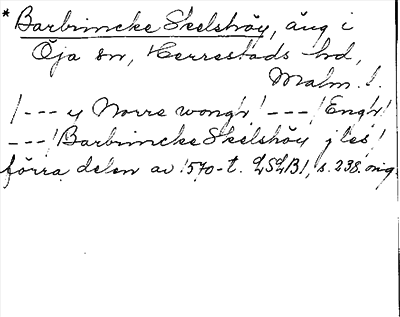 * Barbrincke Skelshöy, äng i
Öja sn, Herrestads hd,
Malm. l.
/--- y Norre wongh/ ---/Engh/
---/Barbrincke Skelshöy jles/
förra delen av 1570-t. LSLB1, s. 238. orig